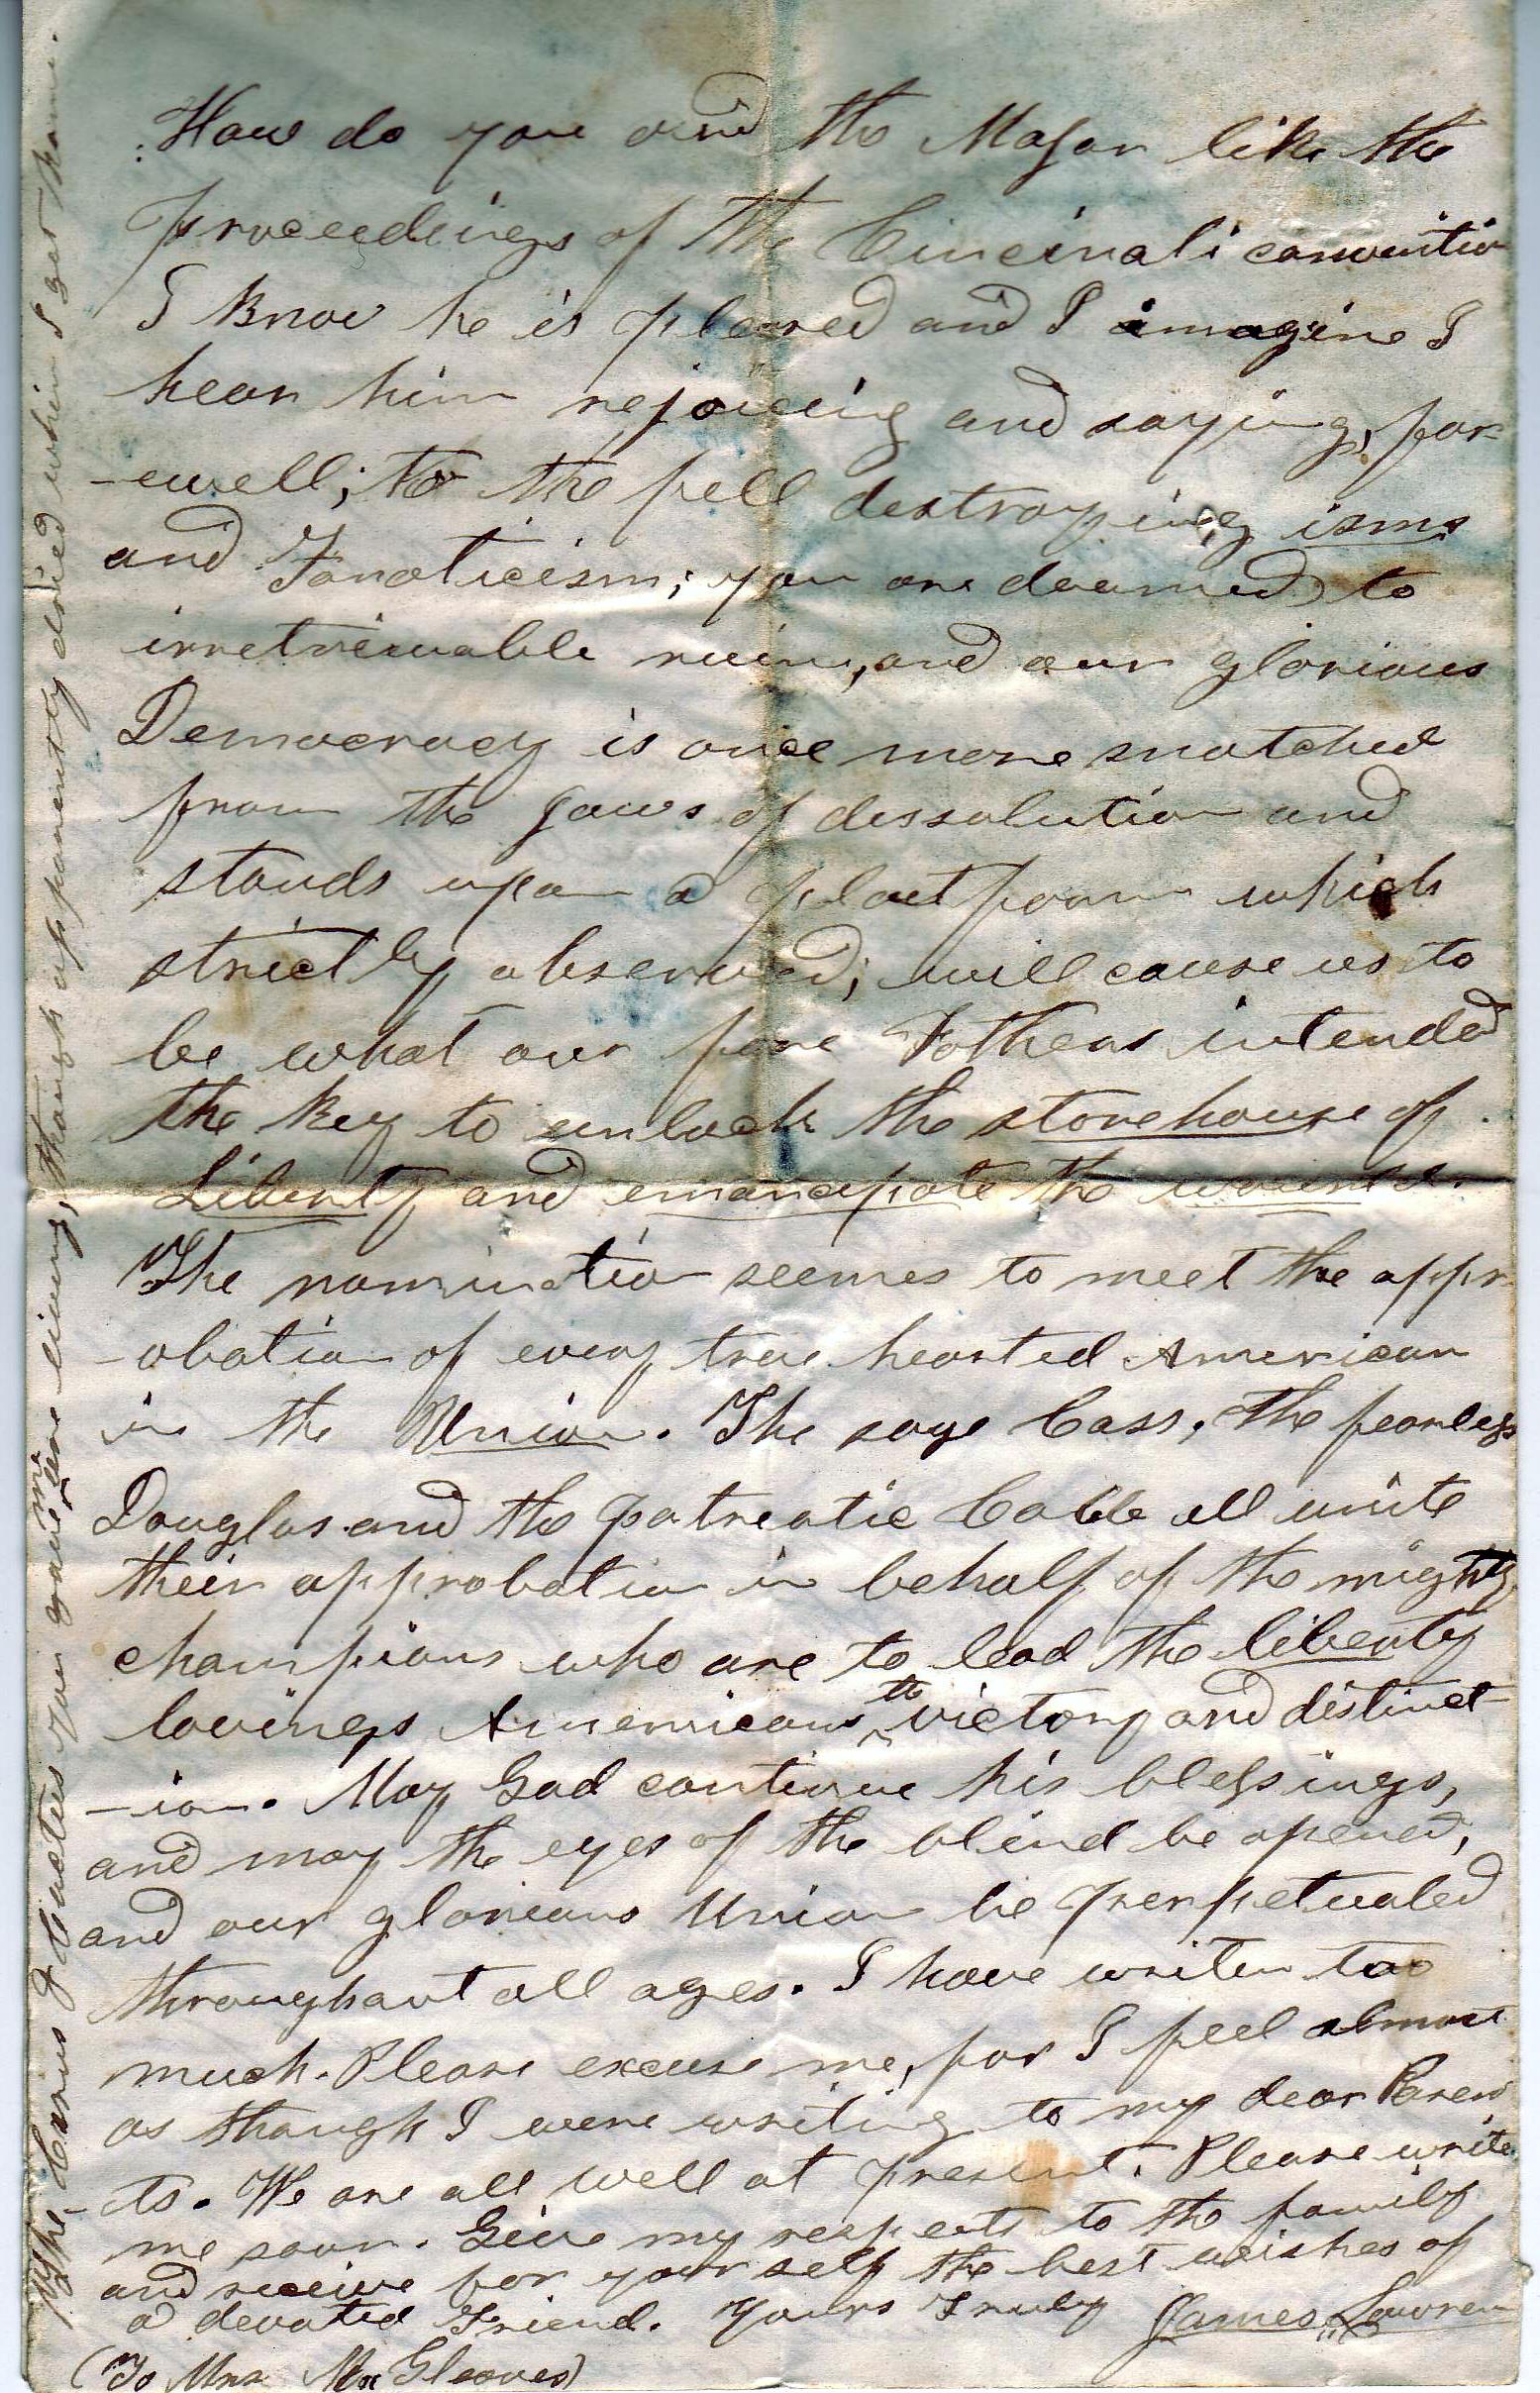 How do you and the Major like the
proceedings of the Cincinati convention
I know he is pleased and I imagine I
hear him rejoicing and saying, far-
-ewell; to the fell destroying isms
and Fanaticism; you are doomed to
irretrievable ruin, and our glorious
Democracy is once more snatched
from the jaws of dissolution and
stands upon a platform which
strictly observed; will cause us to
be what our fore Fathers intended
the key to unlock the storehouse of
Liberty and emancipate the
The nomination seemes to meet the appr-
-obation of every true hearted American
in the Union. The sage Cass, the fearless
Douglas and the patreatic Cobb all unite
their approbation in behalf of the mighty
champions who are to lead the liberty
lovings Americans to victory and distinct
-ion. May God continue his blessings,
and may the eyes of the blind be opened,
and our glorious Union be perpetuated
throughout all ages. I have writen too
much. Please excuse me, for I feel almost
as though I were writing to my dear Paren
-ts. We are all well at present. Please write
me soon. Give my respects to the family
and receive for your self the best wishes of
a devoted Friend. Yours Truly James Lawren
(To Mrs Mc Gleaves)
The Cactus you gave me are living, though apparently dried when I got home.